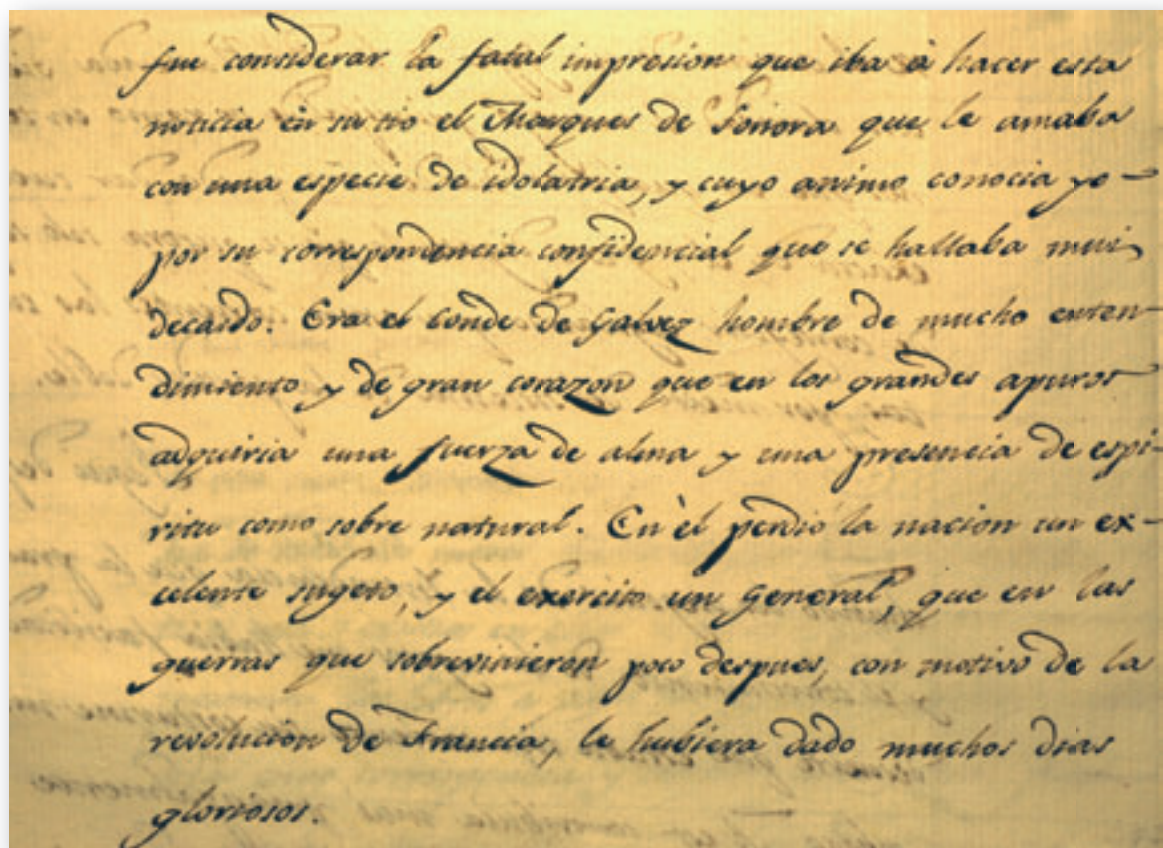 fue considerar la fatal impresion que iba à hacer esta
noticia en su tio el Marques de Sonora que le amaba
con una especie de idolatria, y cuyo animo conocia yo
por su correspondencia confidencial que se hallaba mui
decaido. Era el Conde de Galvez hombre de mucho enten-
dimiento y de gran corazon que en los grandes apuros
adquiria una fuerza de alma y una presencia de espi-
ritu como sobre natural. En èl perdiò la nacion un ex-
celente sugeto, y el exercito un General, que en las
guerras que sobrevinieron poco despues, con motivo de la
revolucion de Francia, le hubiera dado muchos dias
gloriosos.